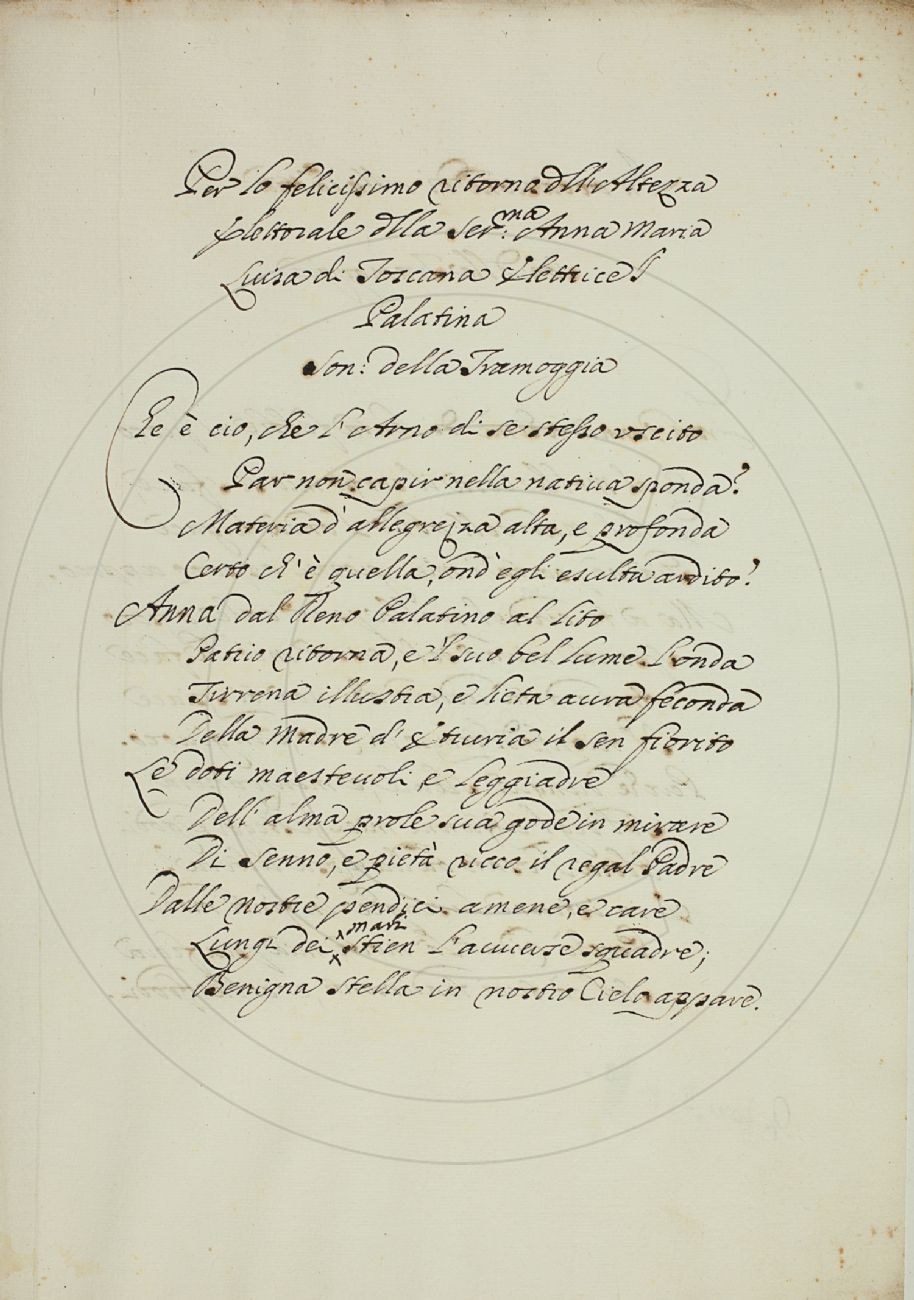 Per lo felicissimo ritorno dell'Altezza
Elettorale della Ser:ma Anna Maria
Luisa di Toscana Elettrice
Palatina
Son: della Tramoggia
Che è cio, che l'Arno di se stesso vscito
Par non capir nella natiua sponda?
Materia d'allegrezza alta, e profonda
Certo ch'è quella, ond'egli esulta ardito?
Anna dal Reno Palatino al lito
Patrio ritorna, e 'l suo bel lume l'onda
Tirrena illustra, e lieta aura feconda
Della Madre d'Etruria il sen fiorito
Le doti maesteuoli, e leggiadre
Dell'alma prole sua gode in mirare
Di senno, e pietà ricco il regal Padre
Dalle nostre pendici amene, e care
Lungi dei mari stien l'auuerse squadre;
Benigna stella in nostro Cielo appare.